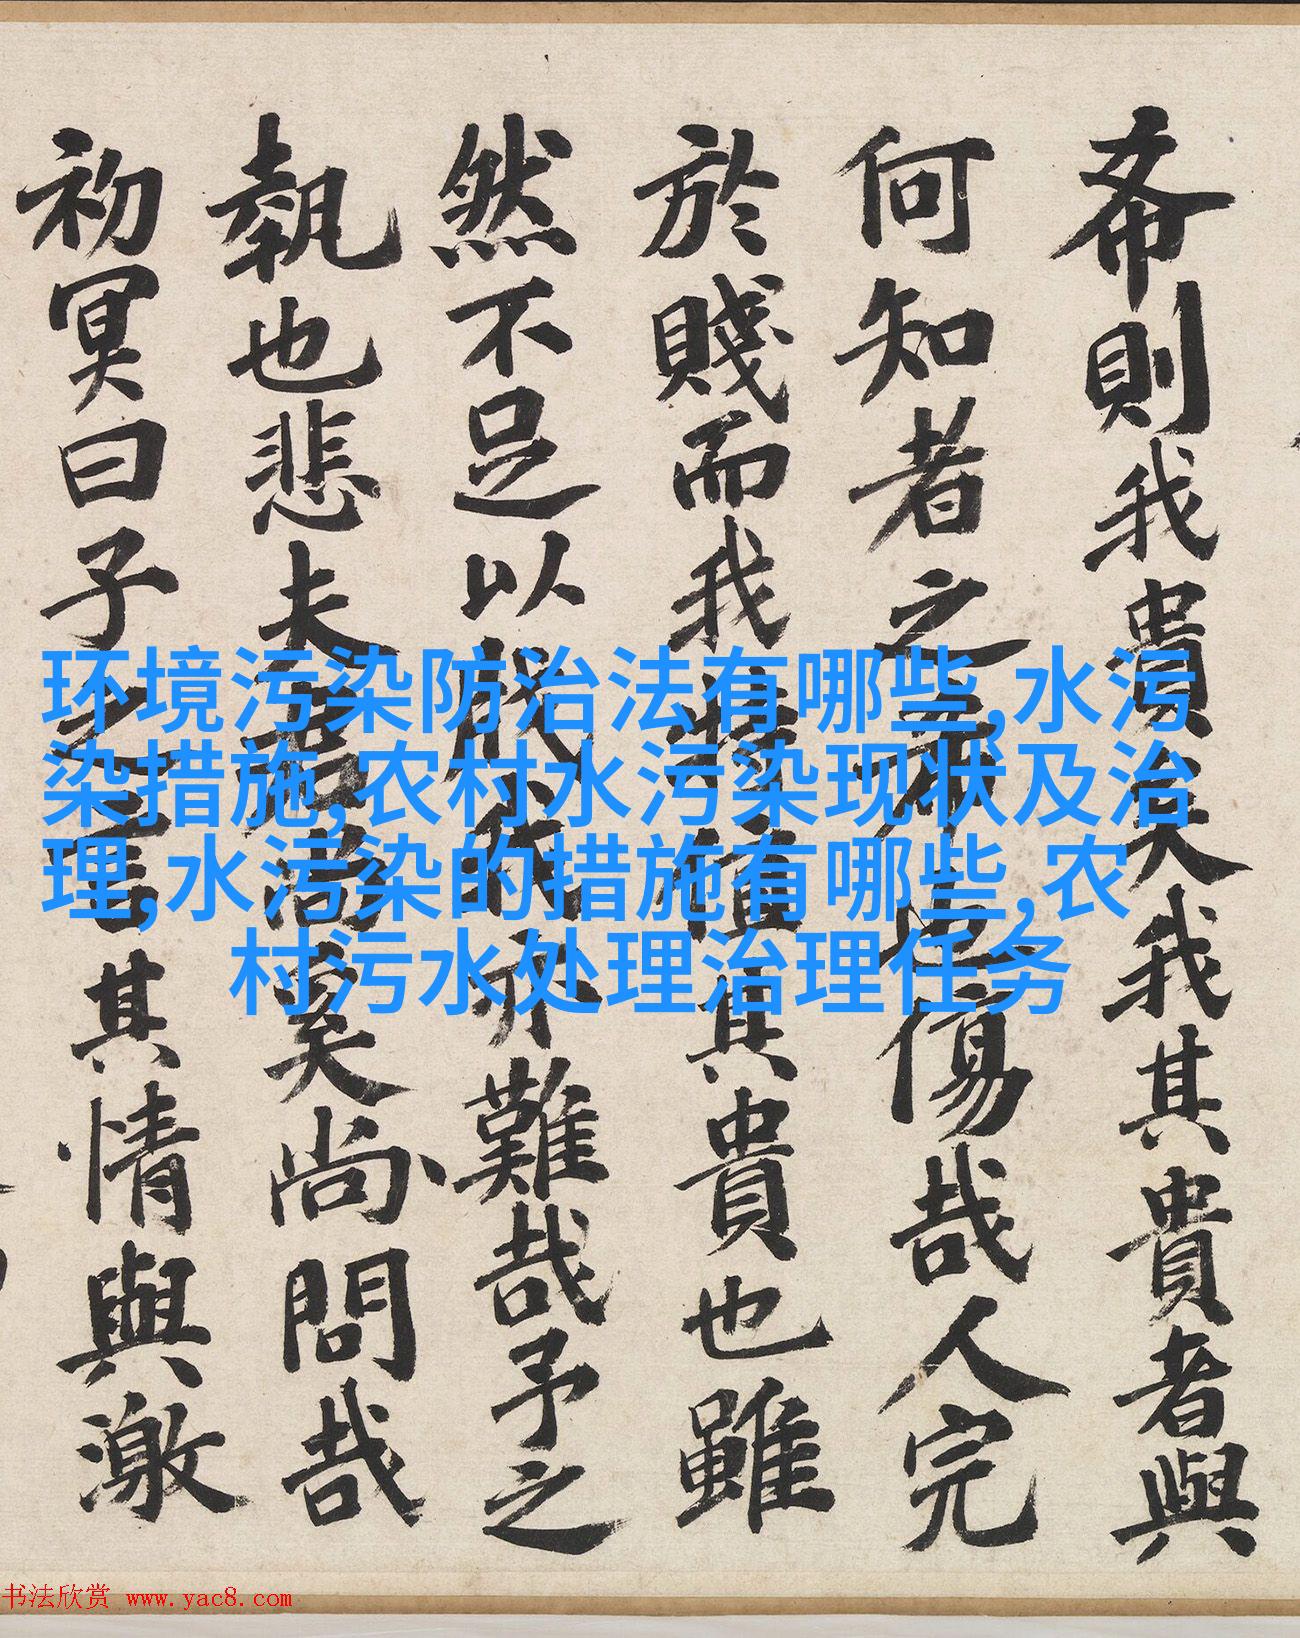 希則我貴矣我其貴者與
何知者之希傷哉人完
於賤而我值其貴也雖
然不足以難哉予之
執也悲夫奚尚問哉
初冥曰子之言其情與激
环境污染防治法有哪些,水污
染措施,农村水污染现状及治
理,水污染的措施有哪些,农
村污水处理治理任务
书法欣赏 www.yac8.com